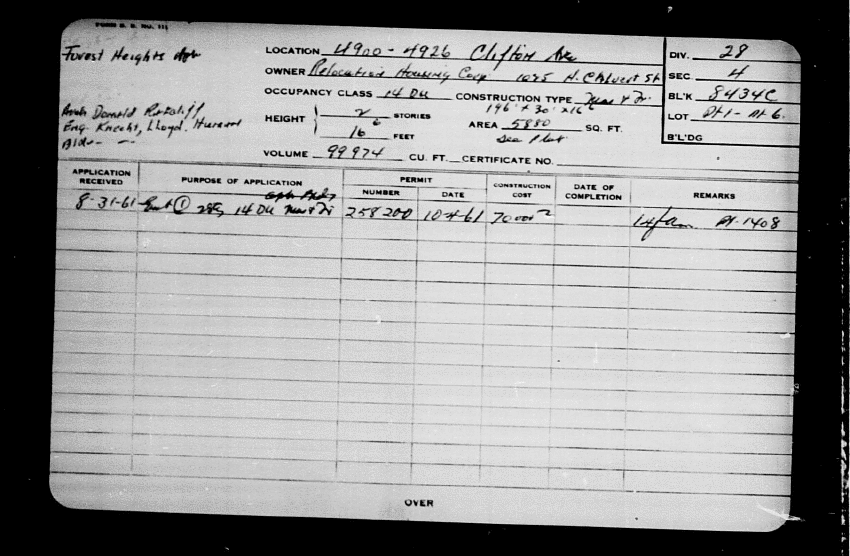 FORM B. B. NO. 111
Forest Heights Apt
LOCATION 4900 - 4926 Clifton Ave
OWNER Relocation Housing Corp 1025 N. Calvert St
OCCUPANCY CLASS 14 DU CONSTRUCTION TYPE Mas & Fr.
196' x 30' x 16'6
Arch Donald
Eng. Knecht, Lloyd,
Bldr - -
HEIGHT 2 STORIES
16 6 FEET
AREA 5880 SQ. FT.
See Plat
VOLUME 99974 CU. FT. CERTIFICATE NO.
DIV. 28
SEC 4
BL'K 8434C
LOT Pt 1 - Pt 6.
B'L'DG
APPLICATION RECEIVED PURPOSE OF APPLICATION PERMIT NUMBER DATE CONSTRUCTION COST DATE OF COMPLETION REMARKS
8-31-61 ① 14 DU Mas & Fr 258200 10-4-61 70 000 14 fam Pt-1408
OVER